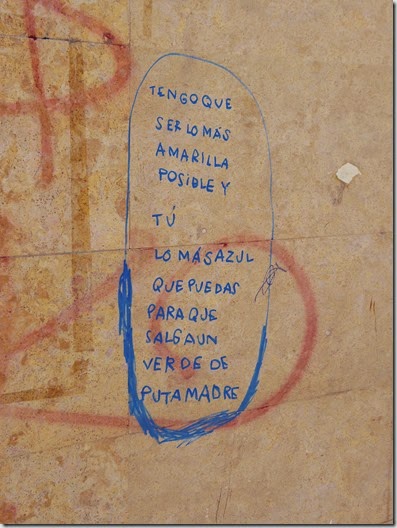 TENGO QUE
SER LO MÁS
AMARILLA
POSIBLE Y
TÚ
LO MÁS AZUL
QUE PUEDAS
PARA QUE
SALGA UN
VERDE DE
PUTA MADRE